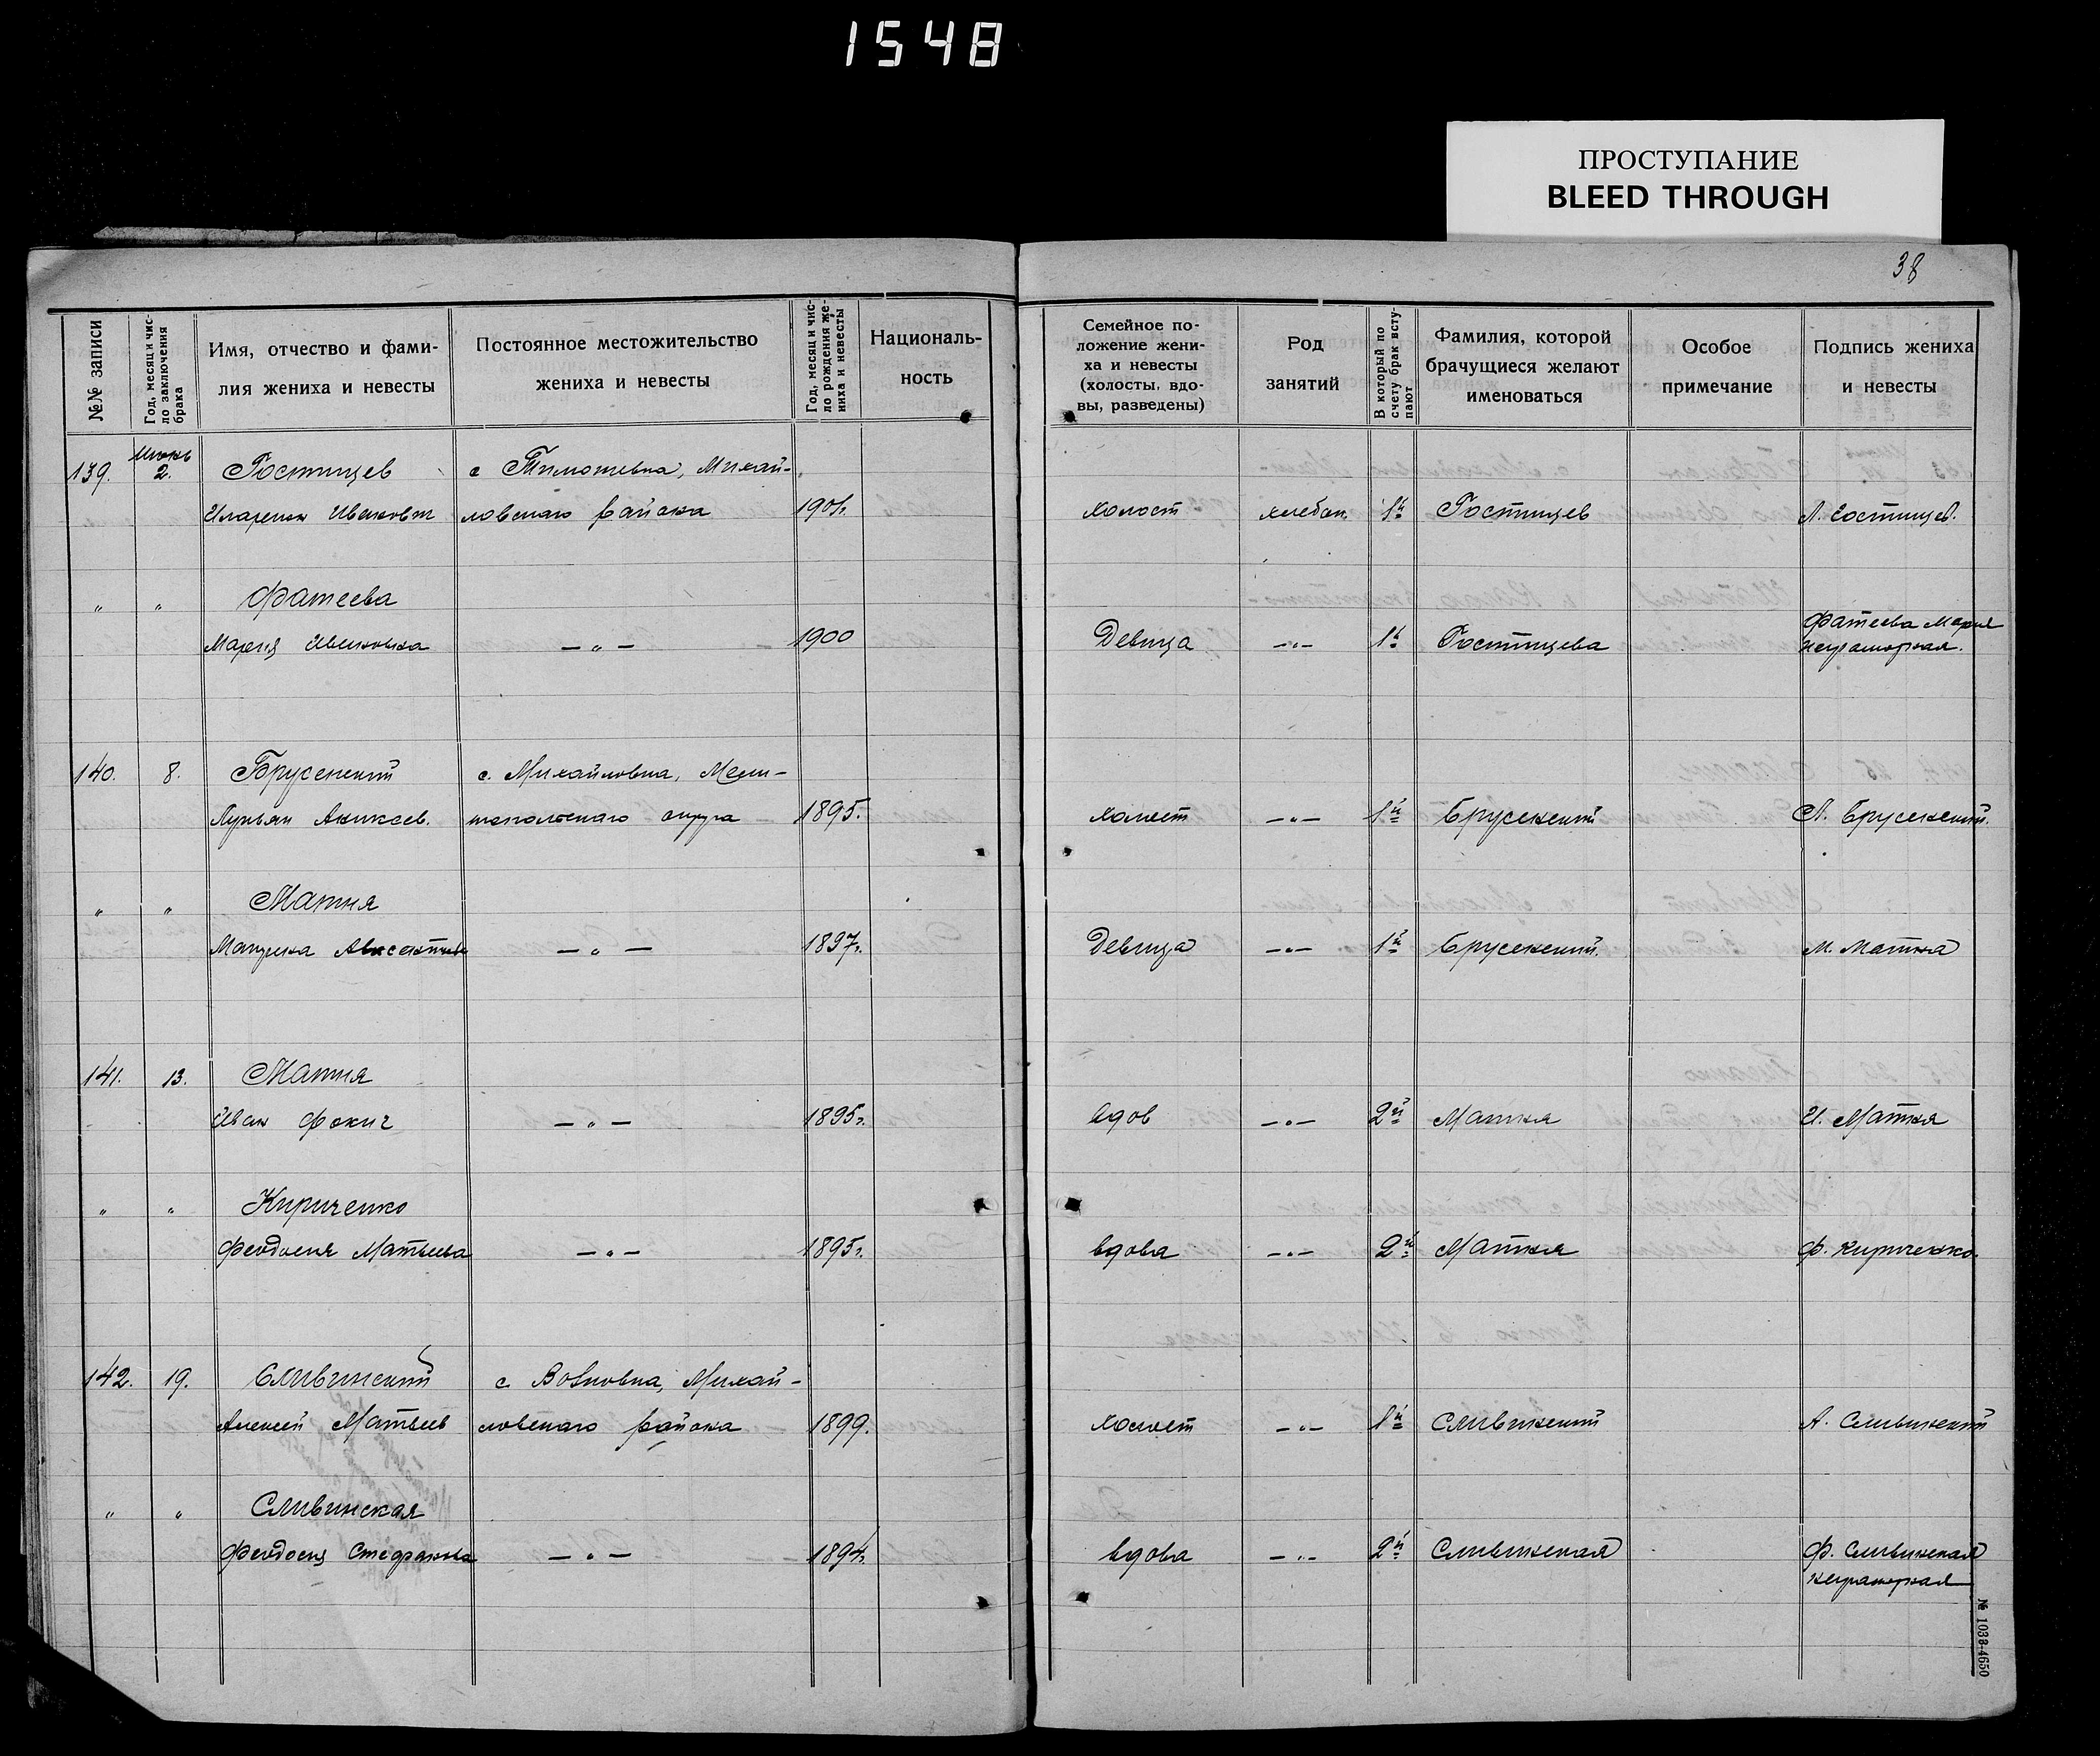 1548
ПРОСТУПАНИЕ
BLEED THROUGH
38
№№ записи
Год, месяц и чис-
ло заключения
брака
Имя, отчество и фами-
лия жениха и невесты
Постоянное местожительство
жениха и невесты
Год, месяц и чис-
ло рождения же-
ниха и невесты
Националь-
ность
Семейное по-
ложение жени-
ха и невесты
(холосты, вдо-
вы, разведены)
Род
занятий
В который по
счету брак всту-
пают
Фамилия, которой
брачущиеся желают
именоваться
Особое
примечание
Подпись жениха
и невесты
139. Июнь 2. Гостищев с Тимошевка, Михай-
Иванович ловского района 1901. холост хлебоп. 1й Гостищев Гостищев.
" " Фатеева
Мария Ивановна — " — 1900 Девица — " — 1й Гостищева Фатеева Мария
неграмотная.
140. 8. Брусенский с. Михайловка, Мели-
Лукьян топольского округа 1895. холост — " — 1й Брусенский Л. Брусенский.
" " Матня
— " — 1897г. Девица — " — 1й Брусенский. М. Матня
141. 13. Матня
Иван Фокич — " — 1895г. вдов — " — 2й Матня И. Матня
" " Кириченко
Феодосия Матвеева — " — 1895г. вдова — " — 2й Матня Ф. Кириченко.
142. 19. Сливинский с Михай-
Алексей Матвеев ловского района 1899. холост — " — 1й Сливинский А. Сливинский
" " Сливинская
Феодосия Стефановна — " — 1894г. вдова — " — 2й Сливинская Ф. Сливинская
неграмотная
№ 1038-4650